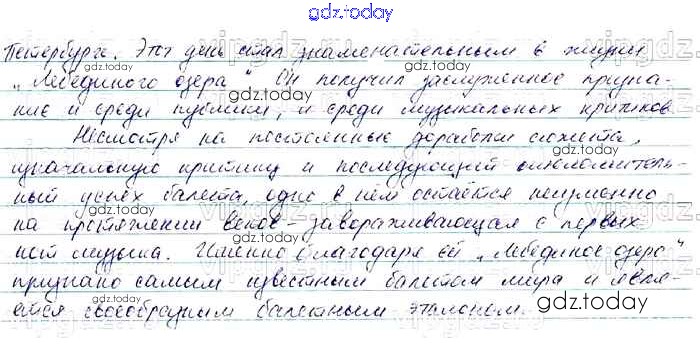 gdz.today
Петербурге. Этот день стал знаменательным в жизни
„Лебединого озера“. Он получил заслуженное призна-
ние и среди публики, и среди музыкальных критиков.
Несмотря на постоянные доработки сюжета,
изначальную критику и последующий ошеломитель-
ный успех балета, одно в нём остаётся неизменно
на протяжении веков – завораживающая с первых
нот музыка. Именно благодаря ей „Лебединое озеро“
признано самым известным балетом мира и явля-
ется своеобразным балетным эталоном.
gdz.today